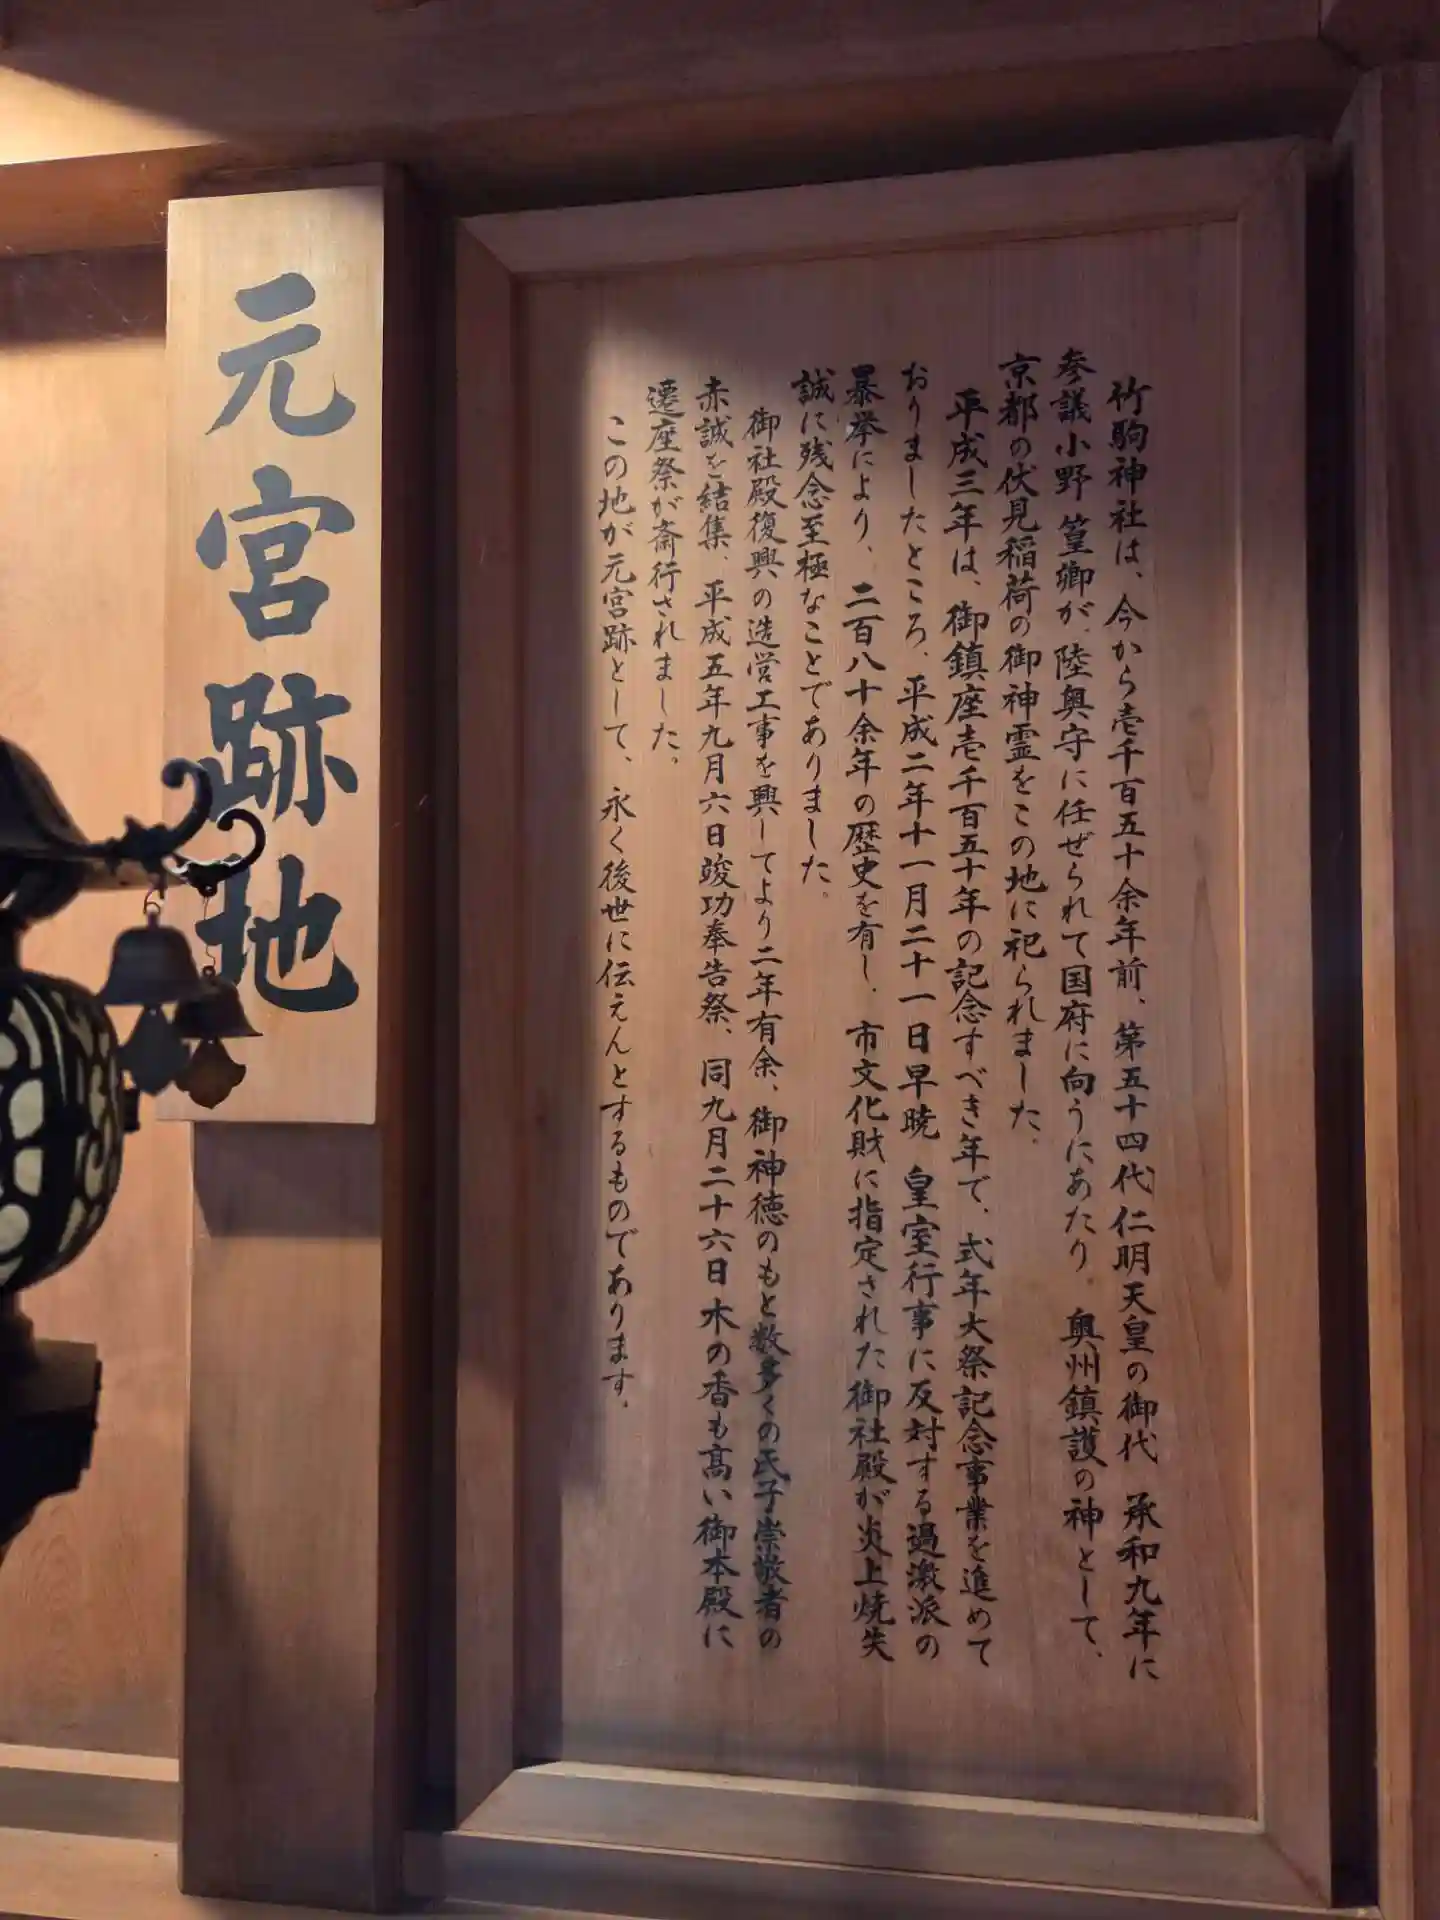 竹駒神社は、今から壱千百五十余年前、第五十四代仁明天皇の御代 承和九年に
参議小野 篁卿が、陸奥守に任ぜられて国府に向うにあたり、奥州鎮護の神として、
京都の伏見稲荷の御神霊をこの地に祀られました。
平成三年は、御鎮座壱千百五十年の記念すべき年で、式年大祭記念事業を進めて
おりましたところ、平成二年十一月二十一日早暁 皇室行事に反対する過激派の
暴挙により、二百八十余年の歴史を有し、市文化財に指定された御社殿が炎上焼失
誠に残念至極なことでありました。
御社殿復興の造営工事を興してより二年有余、御神徳のもと数多くの氏子崇敬者の
赤誠を結集、平成五年九月六日竣功奉告祭、同九月二十六日木の香も高い御本殿に
遷座祭が斎行されました。
この地が元宮跡として、永く後世に伝えんとするものであります。
元宮跡地